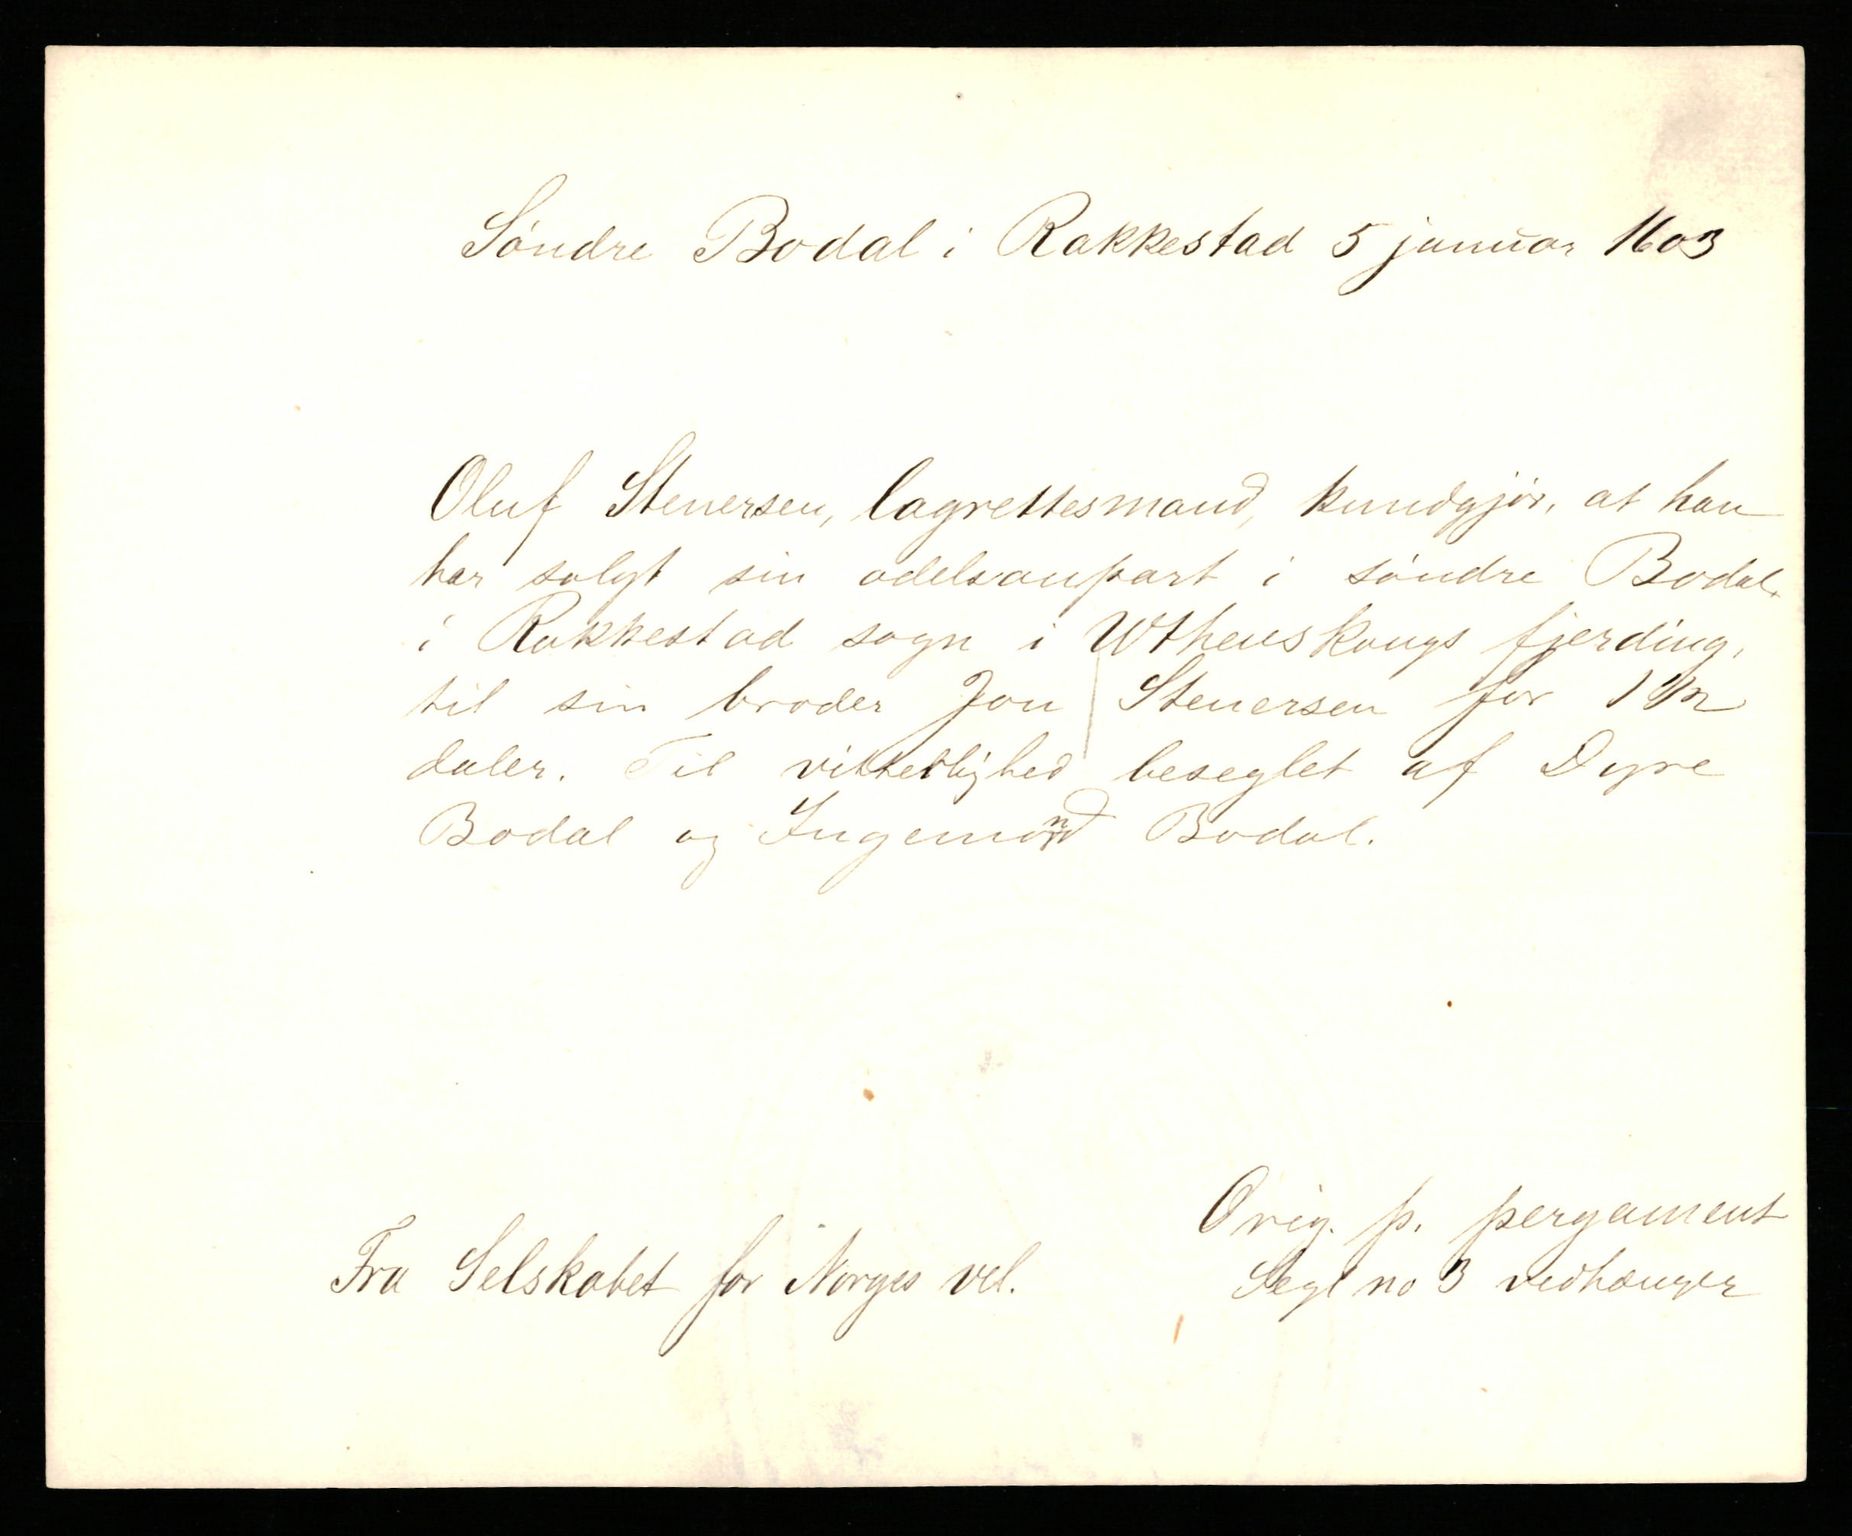 Søndre Bodal i Rakkestad 5 januar 1603
Oluf Stenersen, lagrettesmand, kundgjør, at han
har solgt sin odelsanpart i søndre Bodal
i Rakkestad sogn i Wthenskougs fjerding,
til sin broder Jon Stenersen for 1 1/2
daler. Til vitterlighed beseglet af Dyre
Bodal og Ingemond Bodal.
Orig. p. pergament
Segl no 3 vedhænger
Fra Selskabet for Norges vel.